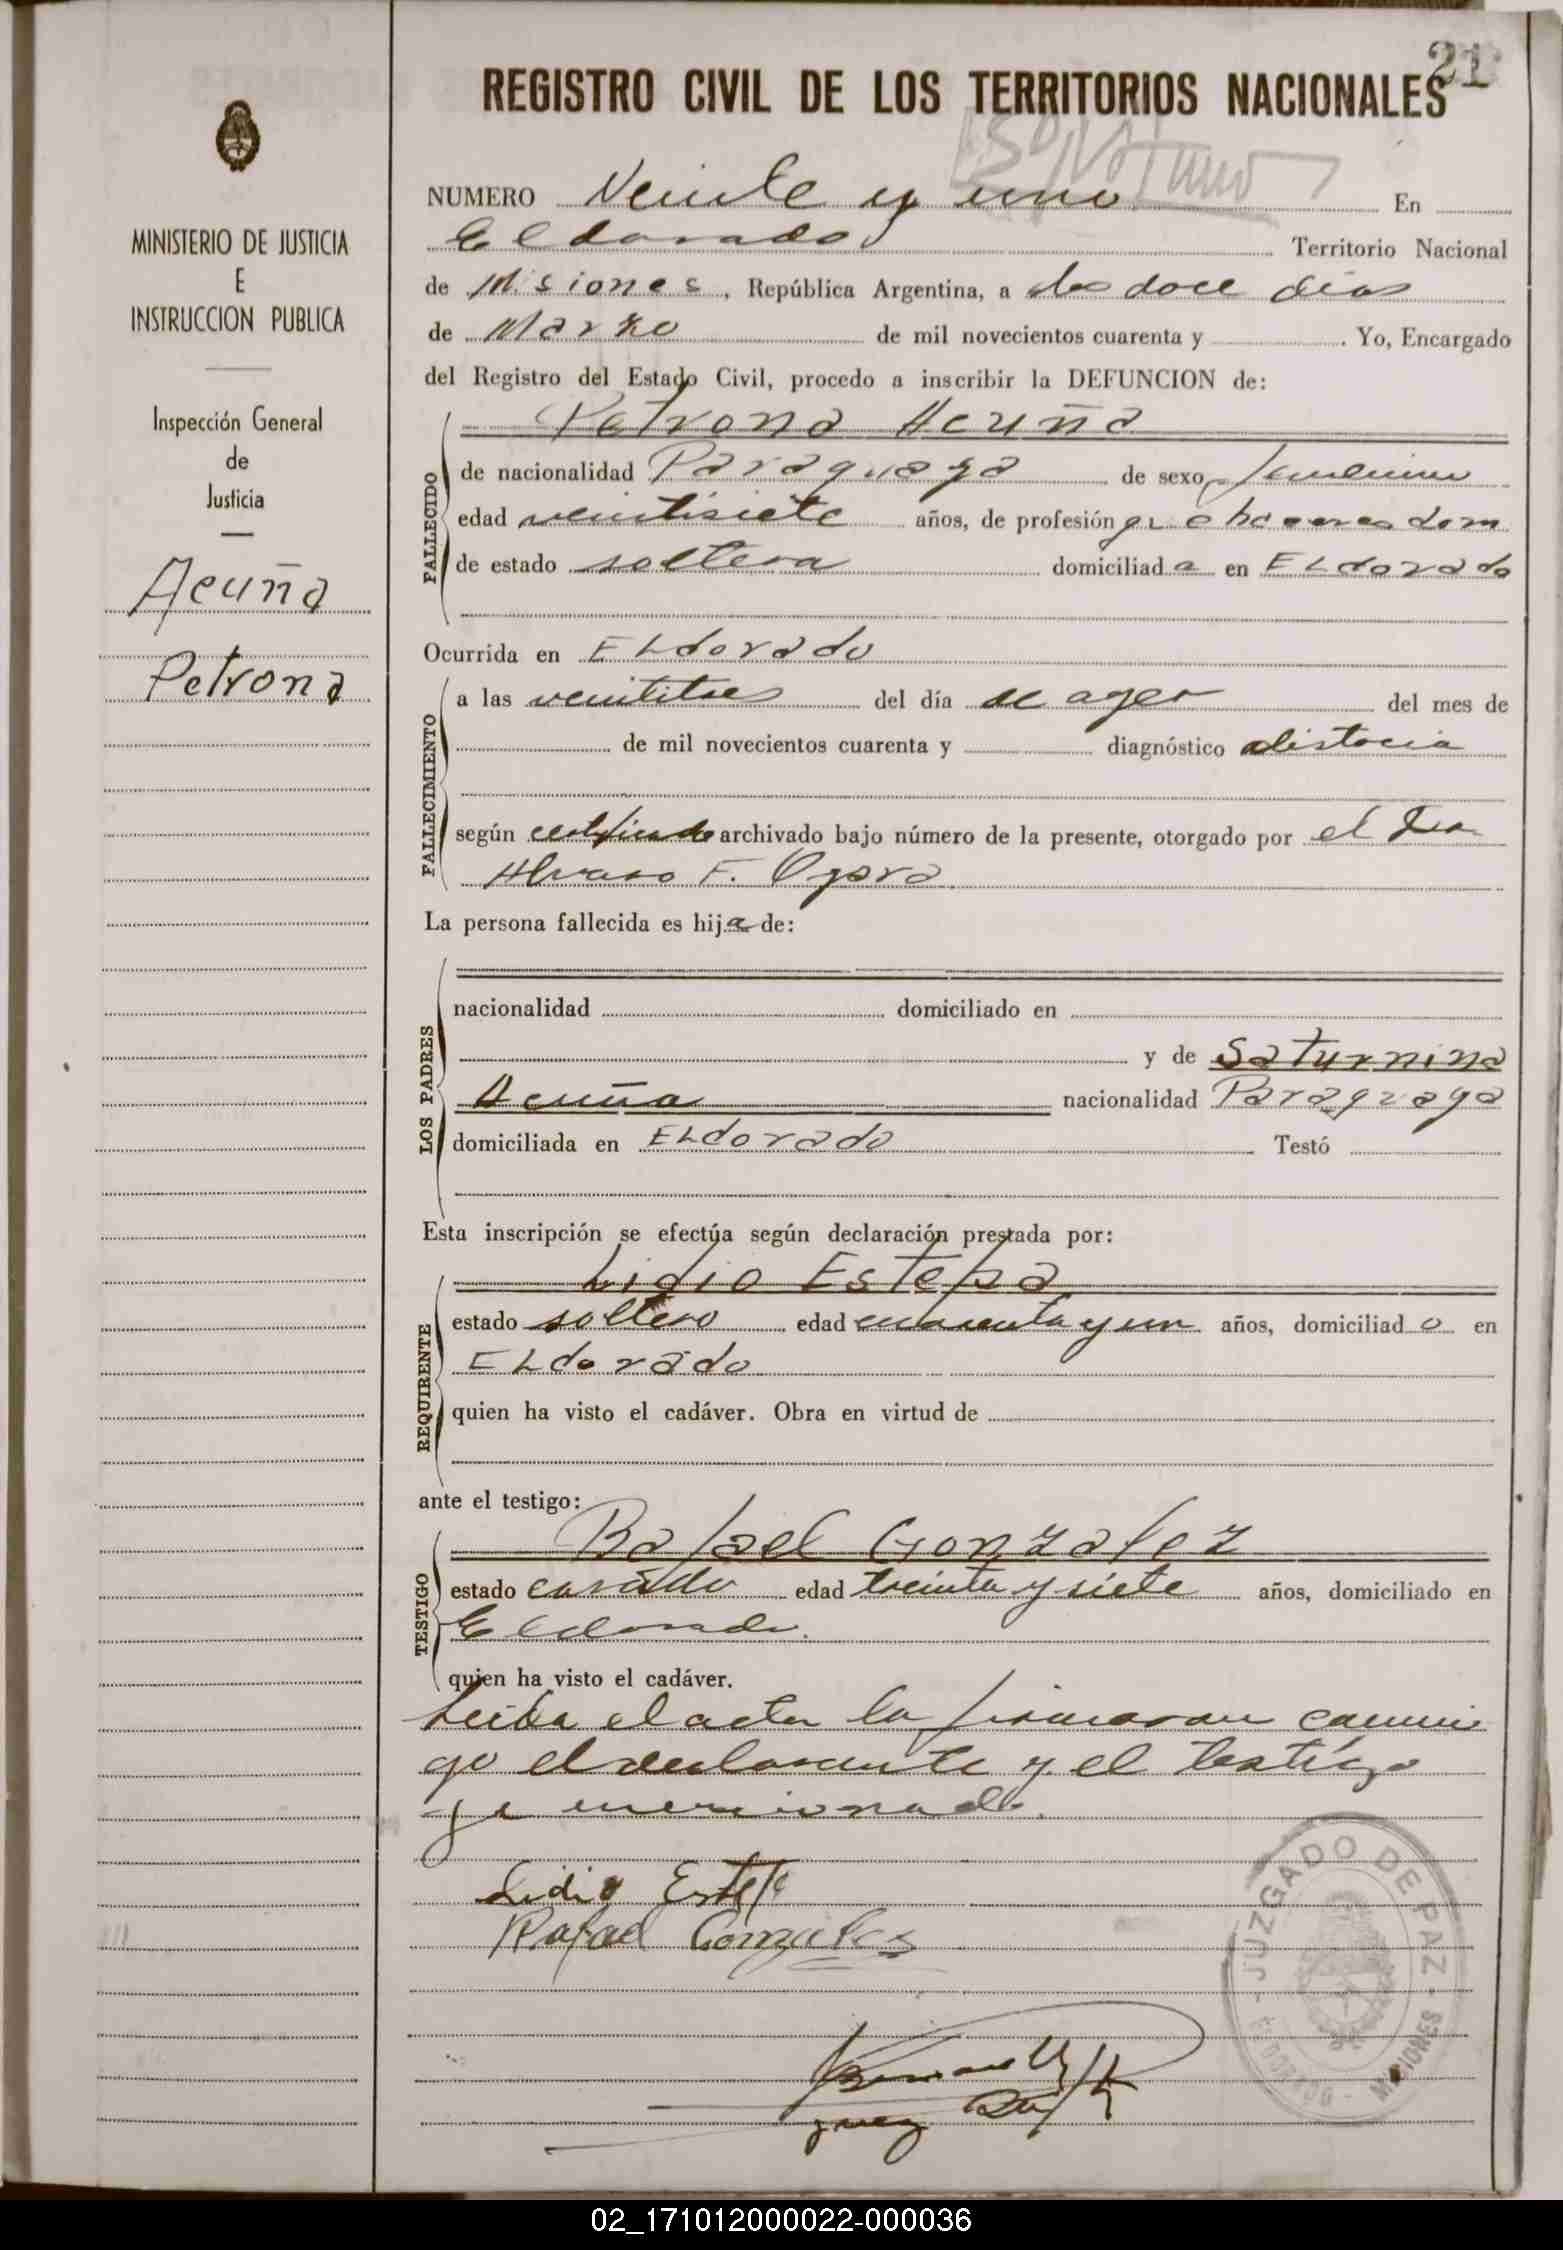 21
REGISTRO CIVIL DE LOS TERRITORIOS NACIONALES
MINISTERIO DE JUSTICIA
E
INSTRUCCION PUBLICA
Inspección General
de
Justicia
Acuña
Petrona
NUMERO Veinte y uno En
Eldorado Territorio Nacional
de Misiones, República Argentina, a los doce dias
de Marzo de mil novecientos cuarenta y . Yo, Encargado
del Registro del Estado Civil, procedo a inscribir la DEFUNCION de:
FALLECIDO
Petrona Acuña
de nacionalidad Paraguaya de sexo femenino
edad veintisiete años, de profesión quehaceres dom
de estado soltera domiciliada en ELdorado
Ocurrida en ELdorado
FALLECIMIENTO
a las veintitres del día de ayer del mes de
de mil novecientos cuarenta y diagnóstico distocia
según certificado archivado bajo número de la presente, otorgado por el
Alvaro F. Ojara
La persona fallecida es hija de:
LOS PADRES
nacionalidad domiciliado en
y de Saturnina
Acuña nacionalidad Paraguaya
domiciliada en ELdorado Testó
Esta inscripción se efectúa según declaración prestada por:
REQUIRENTE
Lidio Estepa
estado soltero edad cuarenta y un años, domiciliado en
ELdorado
quien ha visto el cadáver. Obra en virtud de
ante el testigo:
TESTIGO
Rafael Gonzalez
estado casado edad treinta y siete años, domiciliado en
Eldorado.
quien ha visto el cadáver.
Leida el acta la firmaron conmi
go el declarante y el testigo
ya mencionado.
Lidio Estepa
Rafael Gonzales
JUZGADO DE PAZ
ELDORADO - MISIONES
02_171012000022-000036